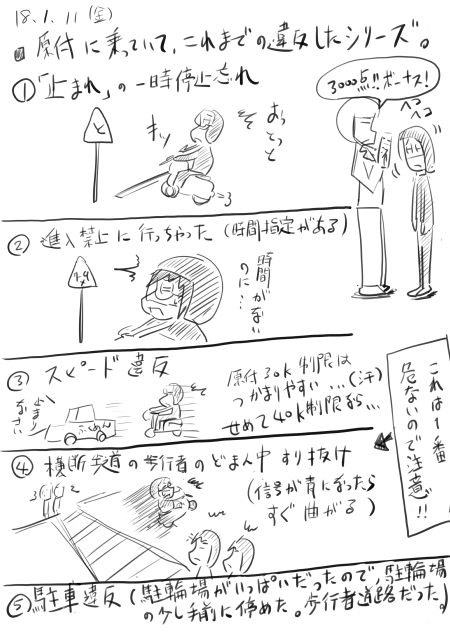 18.1.11(金)
■原付に乗っていて、これまでの違反したシリーズ。
①「止まれ」の一時停止忘れ
3000点!!ボーナス!
ヘコヘコ
と
キッ
おっとっと
②進入禁止に行っちゃった(時間指定がある)
7-9
時間がない
のに…
③スピード違反
原付30k制限は
つかまりやすい…(汗)
せめて40k制限なら…
止まり
なさい
ふくめん
これは1番
危ないので注意!!
④横断歩道の歩行者のどまん中すり抜け
(信号が青になったら
すぐ曲がる)
⑤駐車違反(駐輪場がいっぱいだったので、駐輪場
の少し手前に停めた。歩行者道路だった。)